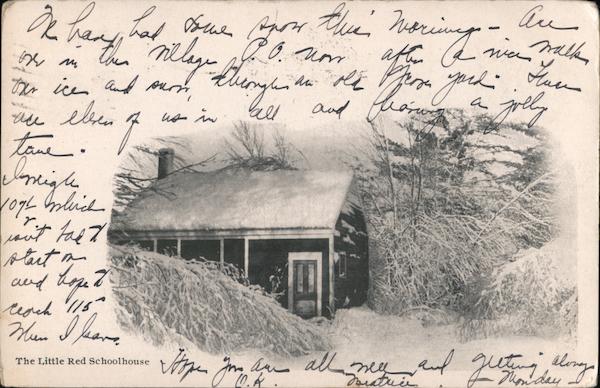 We have had some snow this morning - Are
over in the village P.O. now after a nice walk
over ice and snow, through an old grave yard. There
are eleven of us in all and having a jolly
time.
I weigh
107½ which
isn't bad to
start on
and hope to
reach 115
When I leave.
The Little Red Schoolhouse
Hope you are all well and getting along
O.K. Beatrice. Monday